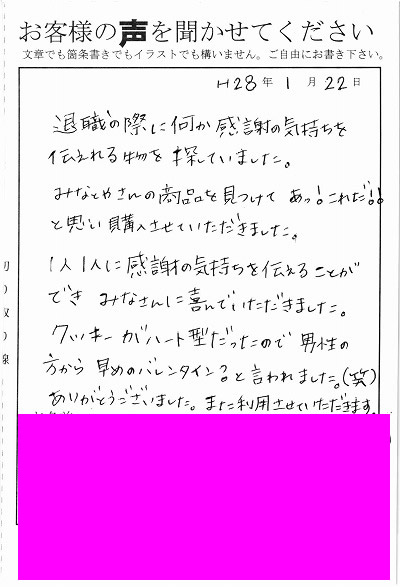 お客様の声を聞かせてください
文章でも箇条書きでもイラストでも構いません。ご自由にお書き下さい。
H28年 1月 22日
退職の際に何か感謝の気持ちを
伝えれる物を探していました。
みなとやさんの商品を見つけて あっ!これだ!!
と思い購入させていただきました。
1人1人に感謝の気持ちを伝えることが
でき みなさんに喜んでいただきました。
クッキーがハート型だったので 男性の
方から 早めのバレンタイン?と言われました。(笑)
ありがとうございました。また利用させていただきます。